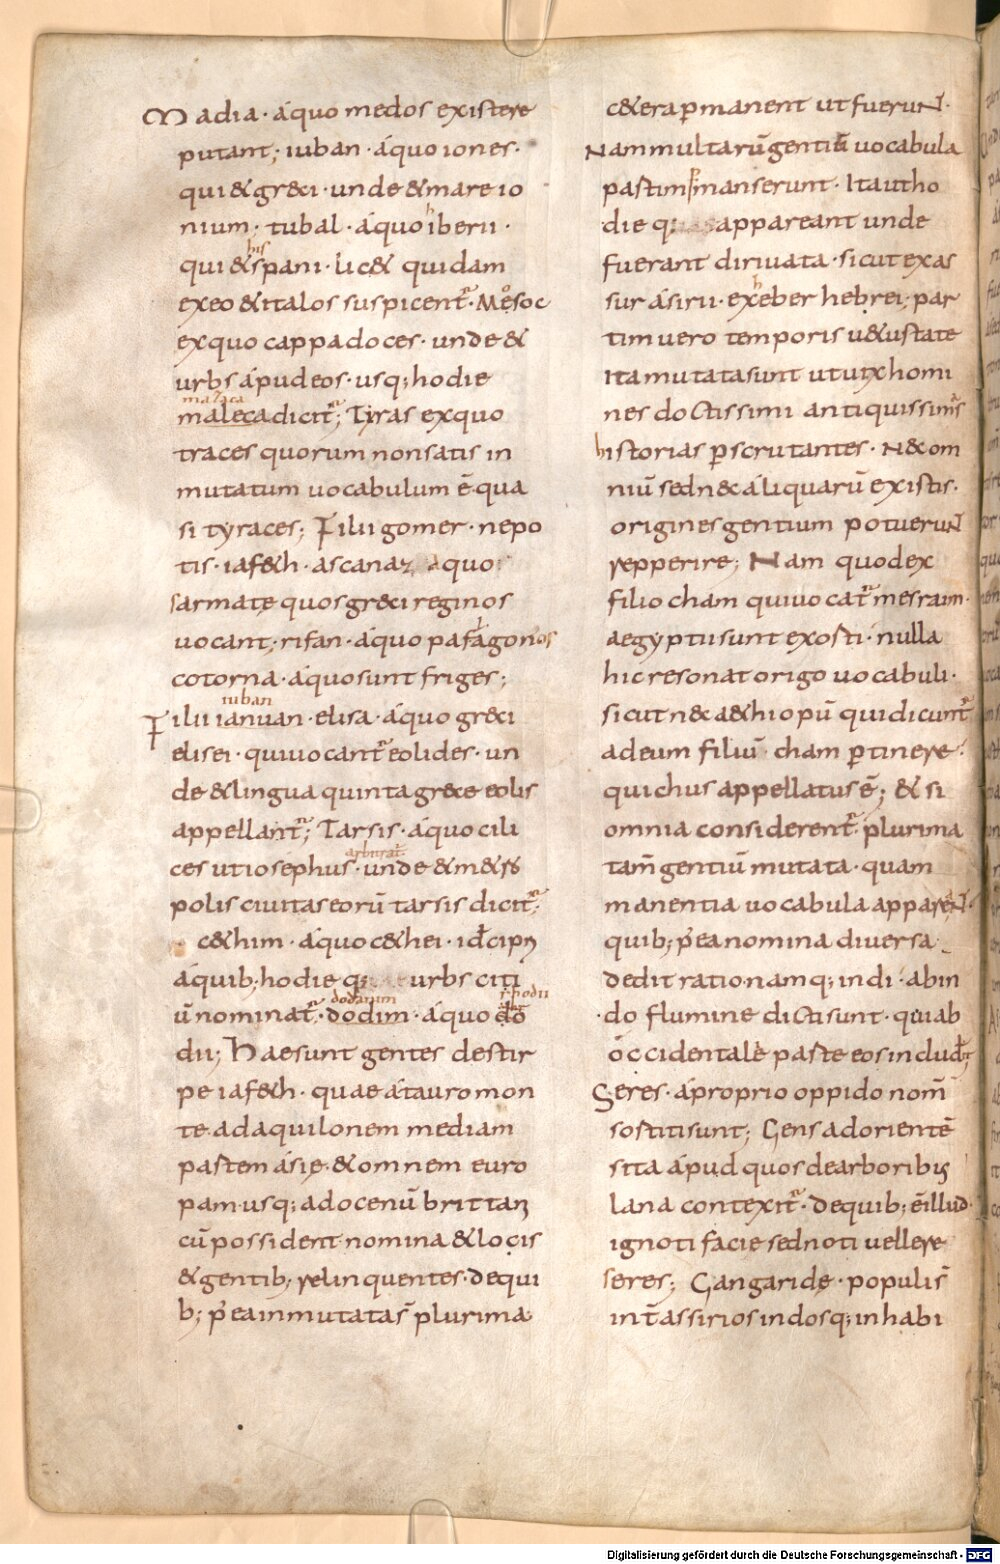 Madia · áquo medos existere
putant; iuban · áquo iones ·
qui & gr&ci · unde & mare io
nium; tubal · áquo iberii ·
h
qui & spani · lic& quidam
his
exeo & italos suspicent̄ · Mesoc
ex quo cappadoces · unde &
urbs ápud eos · usq; hodie
maleca dicit̄; Tyras exquo
mazaca
traces quorum non satis in
mutatum uocabulum ē · qua
si tyraces; Filii gomer · nepo
tis · iaf&h · ascanaz aquo
sarmatę quos gr&ci reginos
uocant; rifan · áquo pafagonos
cotorna · áquo sunt friges;
Filii ianuan · elisa · áquo gr&ci
iuban
elisei · quiuocant̄ eolides · un
de & lingua quinta grece eolis
appellant̄; Tarsis · áquo cili
ces ut iosephus · unde & m&ro
arbitrat̄
polis ciuitas eorū tarsis dicit̄;
c&him · áquo c&hei · id cipri
áquib; hodie q; urbs citi
ū nominat̄ · dodim · áquo do
dodanim
rhodii
dii; Hae sunt gentes destir
pe iaf&h · quae átauro mon
te · ad aquilonem mediam
partem ásię · & omnem euro
pam · usq; ad ocenū brittani
cū possident nomina & locis
& gentib; relinquentes · dequi
b; p̄ea inmutata s̄ plurima ·
c&era p̄manent ut fuerunt ·
Nam multarū gentiū uocabula
partim p̄manserunt · Ita ut ho
die q; appareant unde
fuerant diriuata · sicut ex as
sur ásirii · ex eber hebrei; par
h
tim uero temporis u&ustate
ita mutata sunt ut uix homi
nes doctissimi antiquissimas
historias p̄scrutantes · N& om
niū sed n& áliquarū existis ·
origines gentium potuerunt
repperire; Nam quod ex
filio cham qui uocat̄ mesraim ·
aegyptii sunt exosti · nulla
hic resonat origo uocabuli ·
sicut n& a&hiopū qui dicunt̄
ad eum filiū cham p̄tinere ·
qui chus appellatus ē; & si
omnia considerent̄ · plurima
tam̄ gentiū mutata · quam
manentia uocabula apparent ·
quib; p̄ea nomina diuersa
dedit ratio namq; indi · ab in
do flumine dicti sunt · qui ab
óccidentale parte eos includit
Seres · áproprio oppido nom̄
sostiti sunt; Gens ad orientē
sita ápud quos de arboribus
lana contexit̄ · dequib; ē illud ·
ignoti facie sed noti uellere
seres; Gangaridę · populi s̄
int̄ assirios indosq; inhabi
Digitalisierung gefördert durch die Deutsche Forschungsgemeinschaft - DFG